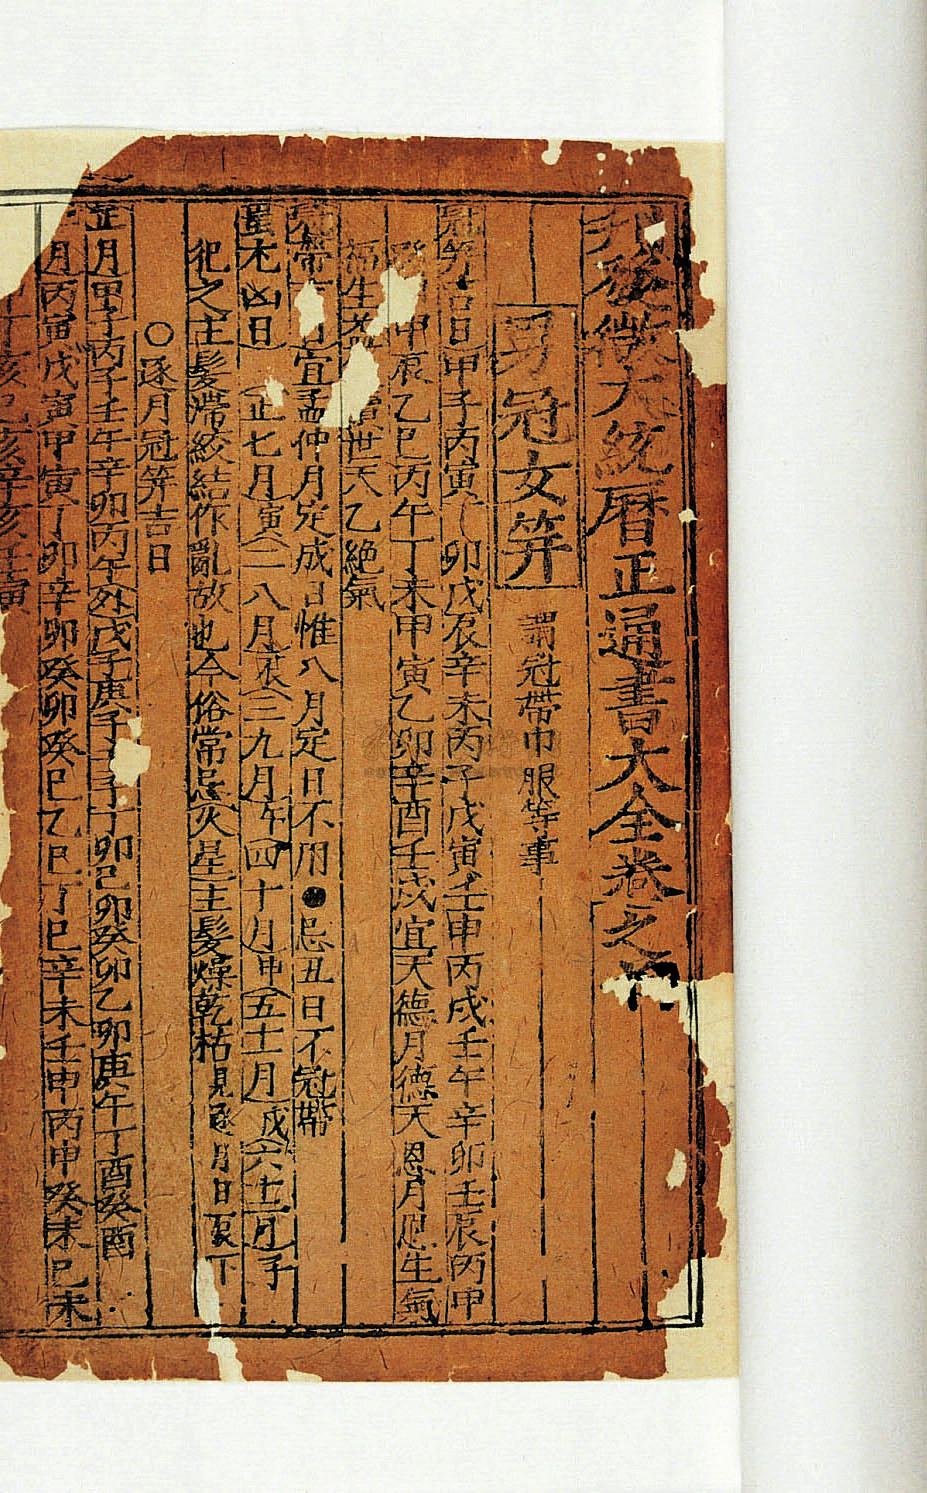 發微大統曆正通書大全卷之
男冠女笄 謂冠帶巾服等事
冠笄吉日甲子丙寅丁卯戊辰辛未丙子戊寅壬申丙戌壬午辛卯壬辰丙申
甲辰乙巳丙午丁未甲寅乙卯辛酉壬戌宜天德月德天恩月恩生氣
福生 世天乙絶氣
冠帶 宜孟仲月定成日惟八月定日不用●忌丑日不冠帶
星木凶日 正七月寅二八月辰三九月午四十月申五十一月戌六十二月子
犯之主髮滯絞結作亂故也今俗常忌火星主髮燥乾枯見逐月日辰下
○逐月冠笄吉日
正月甲子丙子壬午辛卯丙午外戊子庚子 子丁卯己卯癸卯乙卯庚午丁酉癸酉
月丙寅戊寅甲寅丁卯辛卯癸卯癸巳乙巳丁巳辛未壬申丙申癸未己未
亥己亥辛亥壬寅